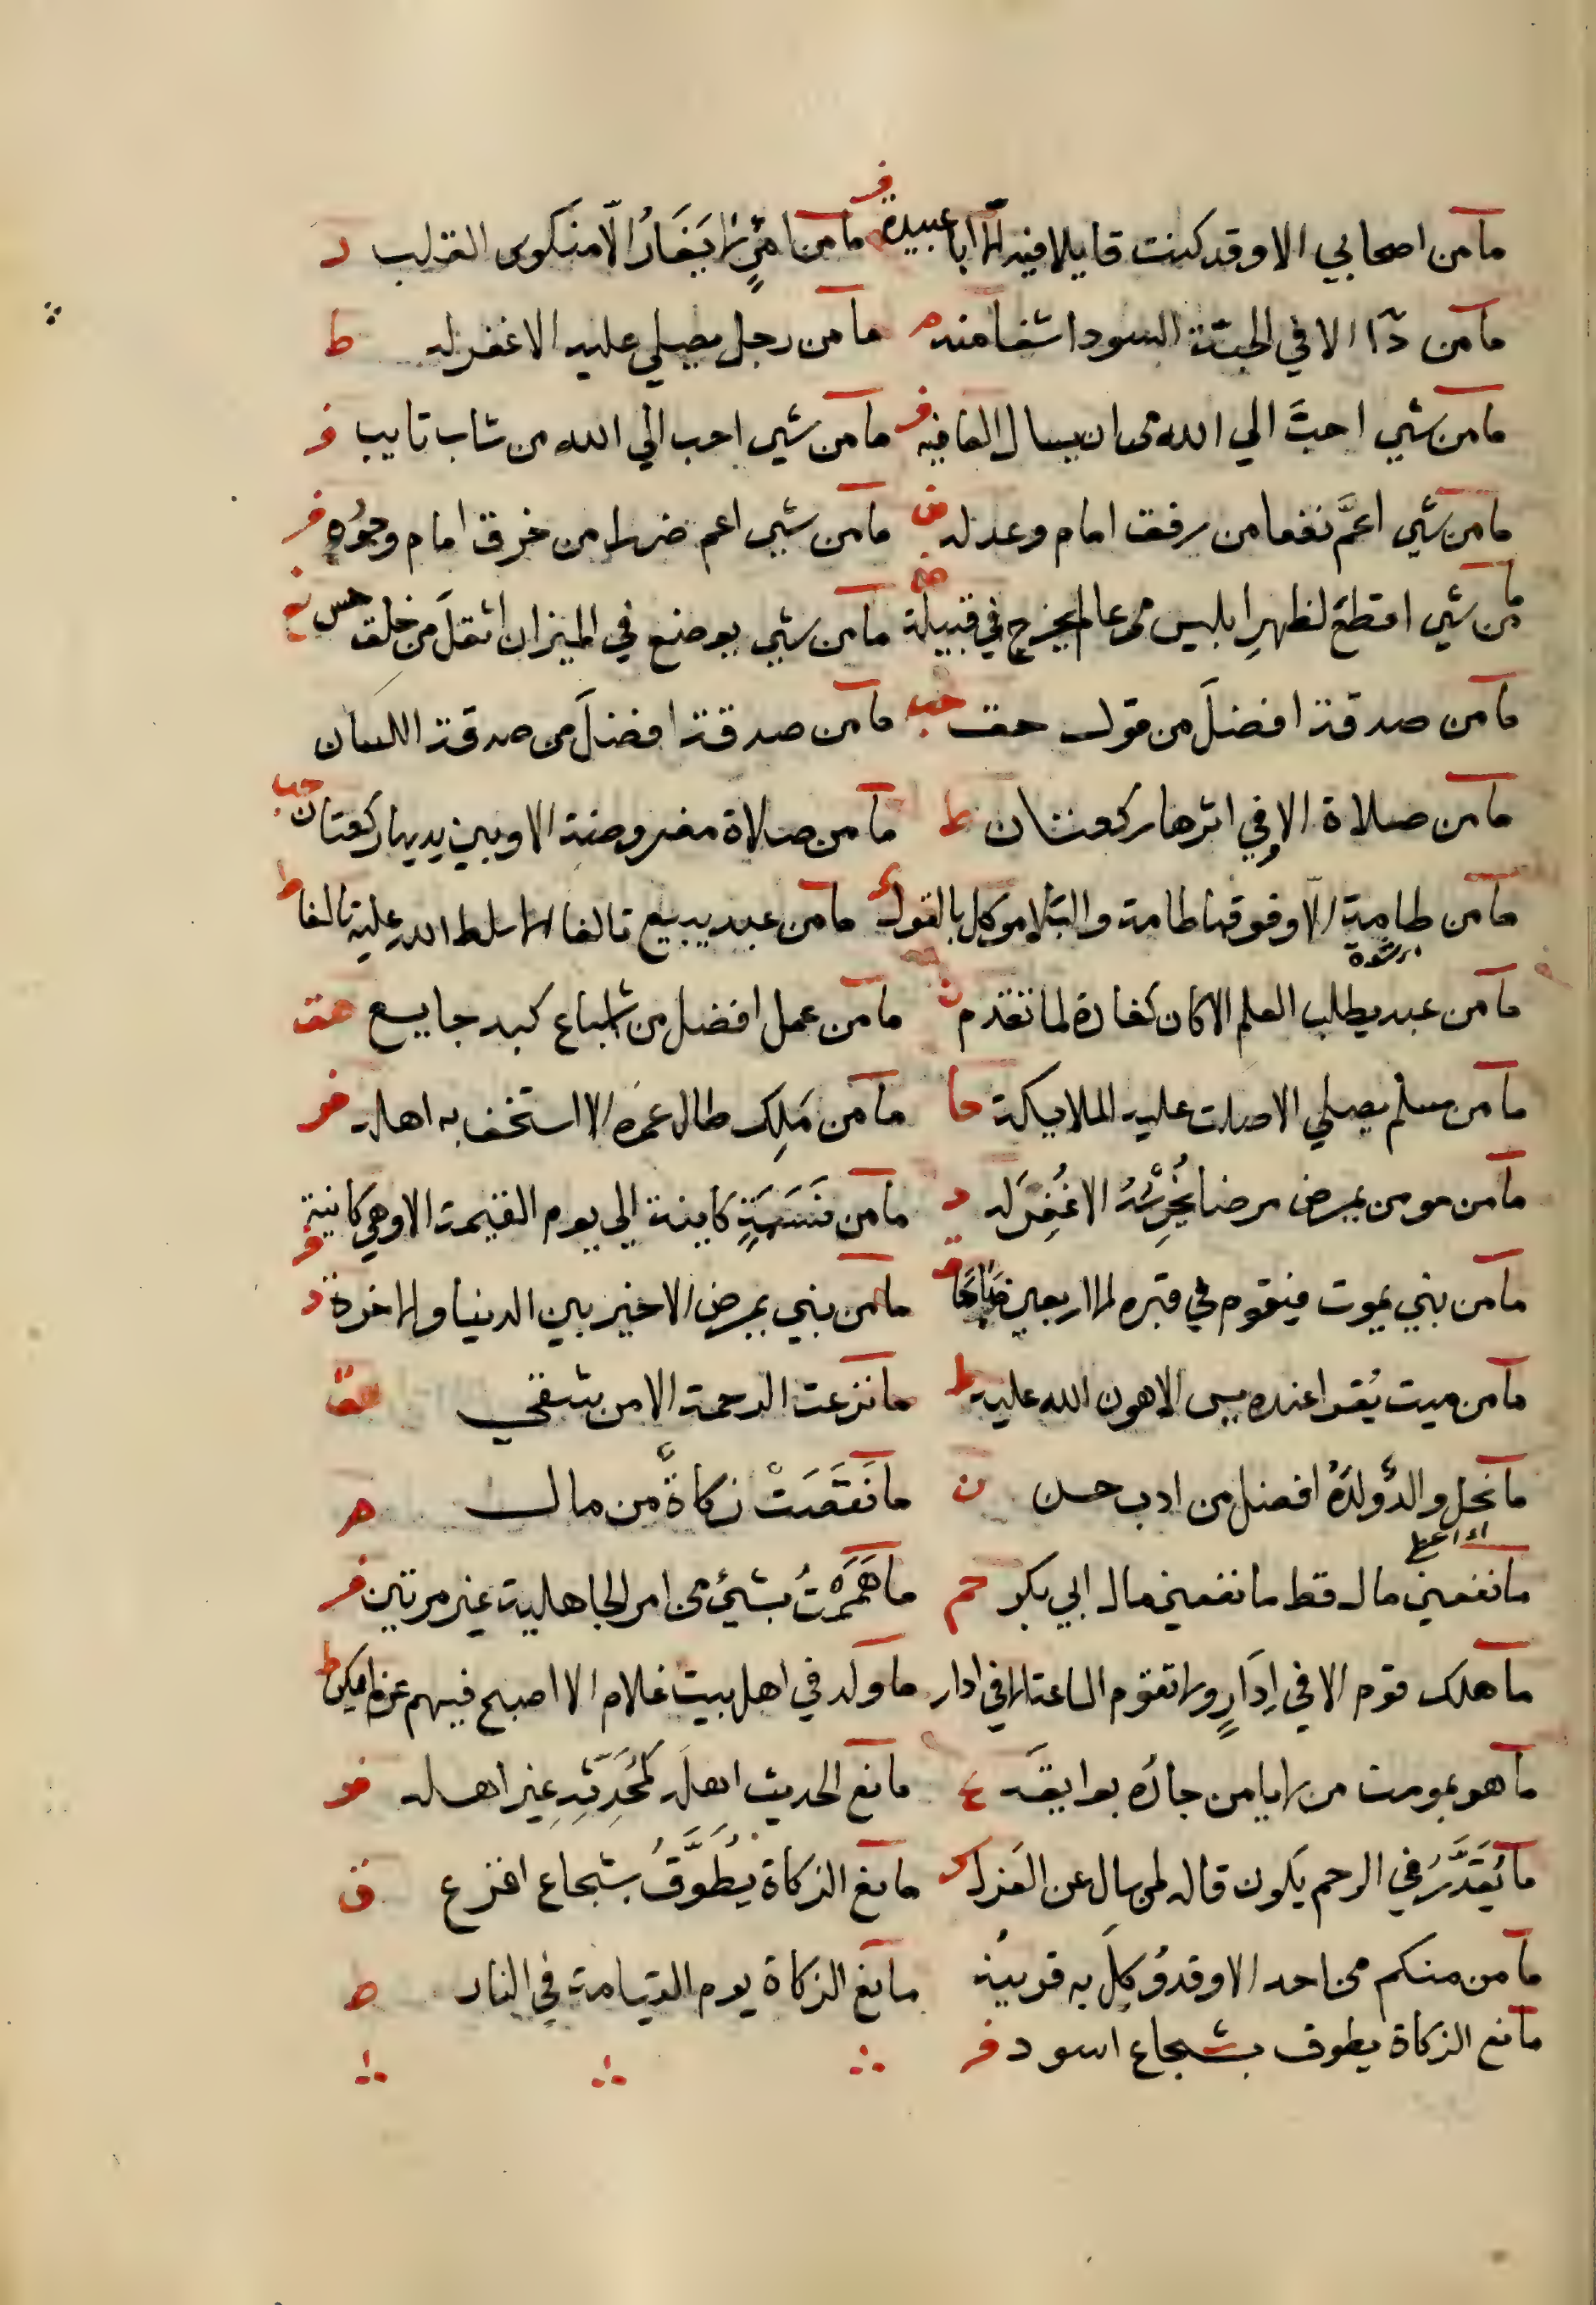 ما من اصحابي الا وقد كنت قايلا فيه الا ابا عبيدة ف ما من امرئ لا يغار الا منكوس القلب د
ما من دآ الا في الحبة السودا شفا منه م ما من رجل يصلي عليه الا غفر له ط
ما من شي احبَّ الي الله من ان يسال العافيه ف ما من شي احب الي الله من شاب تايب ف
ما من شي اعمَّ نفعا من رفق امام وعدله ما من شي اعم ضررا من خرق امام وجوره ف
ما من شي اقطعَ لظهرِ ابليس من عالم يخرج في قبيلة ما من شي يوضع في الميزان اثقلَ من خلق حسن
ما من صدقة افضلَ من قول حق حب ما من صدقة افضلَ من صدقة اللسان
ما من صلاة الا وفي اثرها ركعتان ط ما من صلاة مفروضة الا وبين يديها ركعتان حب
ما من طامةٍ الا وفوقها طامة والبلا موكل بالقول ما من عبد يبيع تالفا الا سلط الله عليه تالفا ط
ما من عبد يطلب العلم الا كان كفارة لما تقدم ن ما من عمل افضل من اشباع كبد جايع هق
ما من مسلم يصلي الا صلت عليه الملايكة حا ما من مَلِك طال عمره الا استخف به اهله فر
ما من مومن يمرض مرضا يُحْرِضُهُ الا غُفِرَ له د ما من نَسَمَةٍ كاينة الي يوم القيمة الا وهي كاينة ف
ما من نبي يموت فيقوم في قبره الا اربعين صَبَاحًا ما من نبي يمرض الا خير بين الدنيا والاخرة د
ما من ميت يُقرا عنده يس الا هون الله عليه ط ما نزعت الرحمة الا من شقي هق
ما نحل والدٌ ولدَهُ افضل من ادب حسن ن ما نَقَصَتْ زكاةٌ من مال هر
ما نفعني مال قط ما نفعني مال ابي بكر حم ما هَمَمْتُ بشئ من امر الجاهلية غير مرتين فر
ما هلك قوم الا في اِذَارٍ ولا تقوم الساعة الا في اذار ما ولد في اهل بيت غلام الا اصبح فيهم عز لم يكن ط
ما هو بمومن من لا يامن جاره بوايقَه ع مانع الحديث اهلَه كمُحَدِّثِهِ غير اهله فر
ما يُقَدَّرُ في الرحم يكون قاله لمن سال عن العزل مانع الزكاة يُطَوَّقُ بشجاع اقرع ق
ما من منكم من احد الا وقد وُكِلَ به قرينُه مانع الزكاة يوم القيامة في النار ص
مانع الزكاة يطوق بشجاع اسود فر